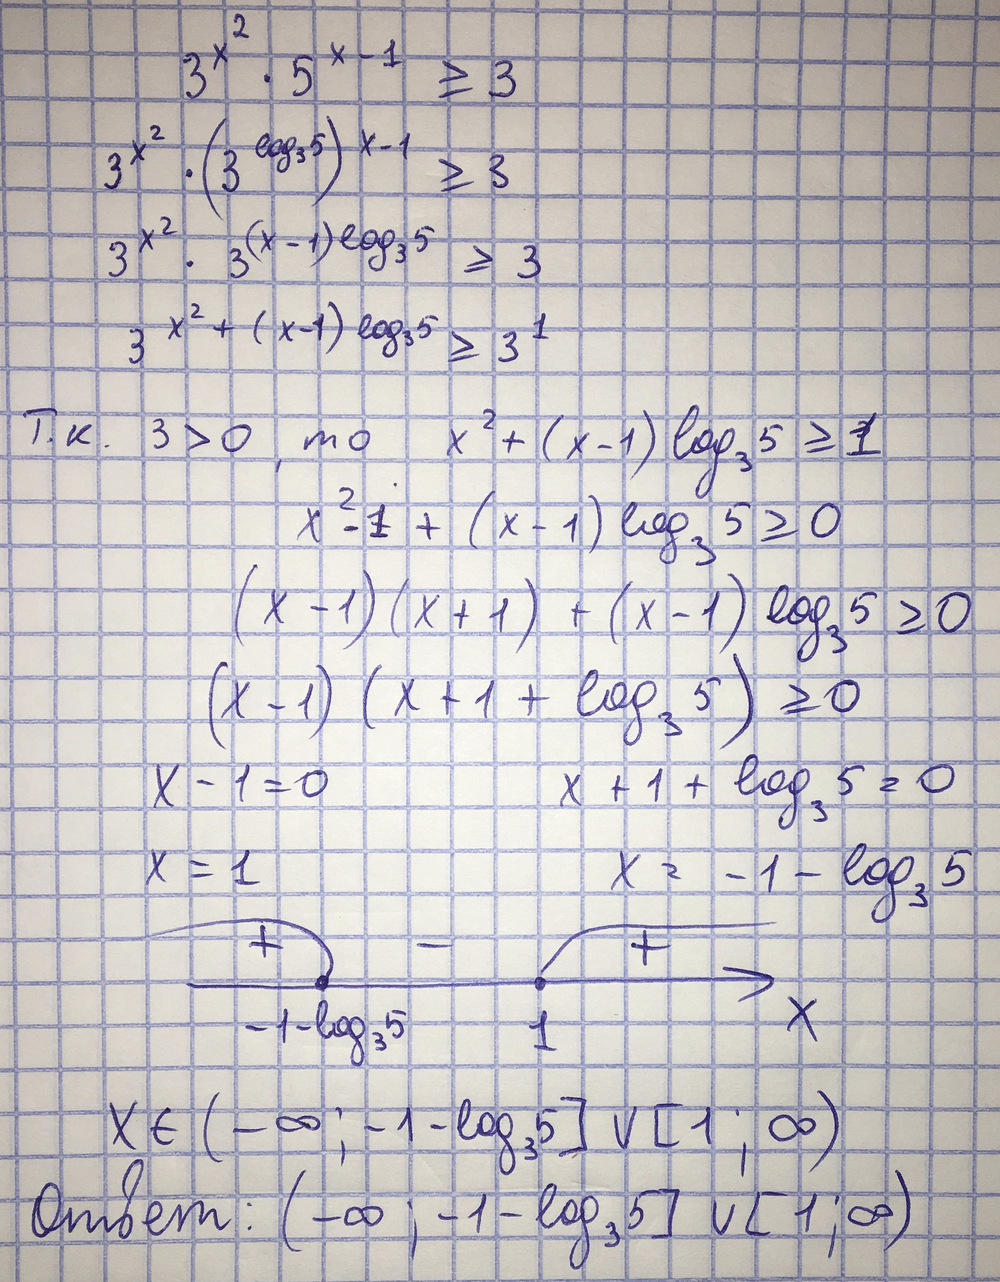 3^{x^2} · 5^{x-1} ≥ 3
3^{x^2} · (3^{log_3 5})^{x-1} ≥ 3
3^{x^2} · 3^{(x-1) log_3 5} ≥ 3
3^{x^2 + (x-1) log_3 5} ≥ 3^1
Т.к. 3 > 0, то x^2 + (x-1) log_3 5 ≥ 1
x^2 - 1 + (x-1) log_3 5 ≥ 0
(x-1)(x+1) + (x-1) log_3 5 ≥ 0
(x-1)(x+1+log_3 5) ≥ 0
x-1=0 x+1+log_3 5=0
x=1 x = -1-log_3 5
+ - +
-1-log_3 5 1 x
x ∈ (-∞; -1-log_3 5] ∨ [1; ∞)
Ответ: (-∞; -1-log_3 5] ∨ [1; ∞)